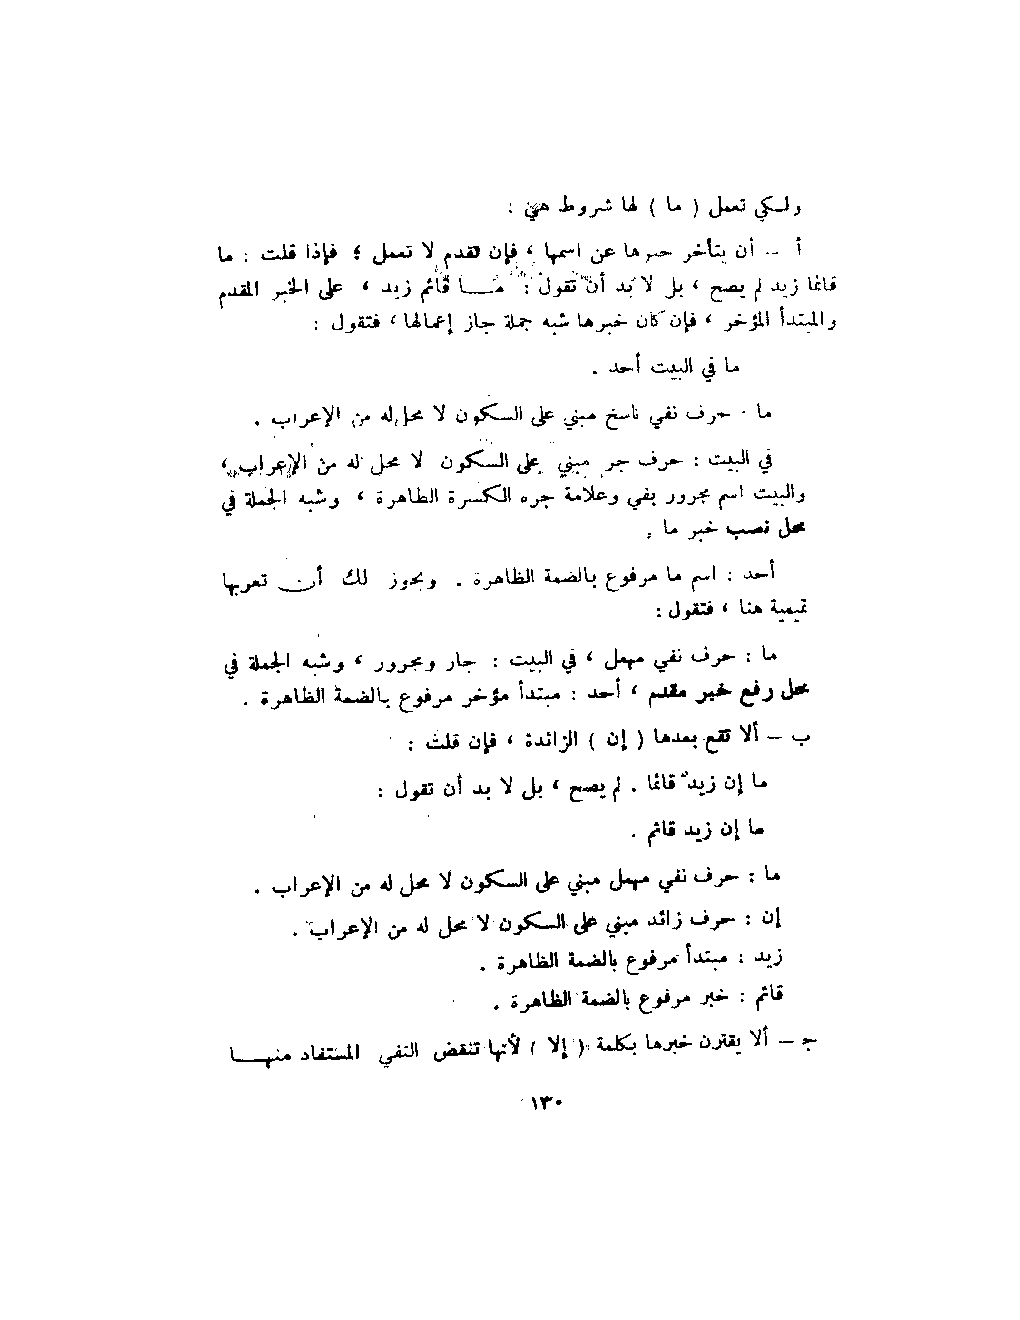 ولكي تعمل ( ما ) لها شروط هي :
أ – أن يتأخر خبرها عن اسمها ، فإن تقدم لا تعمل ؛ فإذا قلت : ما
قائما زيد لم يصح ، بل لا بد أن تقول : مــا قائم زيد ، على الخبر المقدم
والمبتدأ المؤخر ، فإن كان خبرها شبه جملة جاز إعمالها ، فتقول :
ما في البيت أحد .
ما - حرف نفي ناسخ مبني على السكون لا محل له من الإعراب .
في البيت : حرف جر مبني على السكون لا محل له من الإعراب ،
والبيت اسم مجرور بفي وعلامة جره الكسرة الظاهرة ، وشبه الجملة في
محل نصب خبر ما .
أحد : اسم ما مرفوع بالضمة الظاهرة . ويجوز لك أن تعربها
تميمية هنا ، فتقول :
ما : حرف نفي مهمل ، في البيت : جار ومجرور ، وشبه الجملة في
محل رفع خبر مقدم ، أحد : مبتدأ مؤخر مرفوع بالضمة الظاهرة .
ب – ألا تقع بعدها ( إن ) الزائدة ، فإن قلت :
ما إن زيد قائما . لم يصح ، بل لا بد أن تقول :
ما إن زيد قائم .
ما : حرف نفي مهمل مبني على السكون لا محل له من الإعراب .
إن : حرف زائد مبني على السكون لا محل له من الإعراب .
زيد : مبتدأ مرفوع بالضمة الظاهرة .
قائم : خبر مرفوع بالضمة الظاهرة .
جـ – ألا يقترن خبرها بكلمة ( إلا ) لأنها تنقض النفي المستفاد منهــا
١٣٠